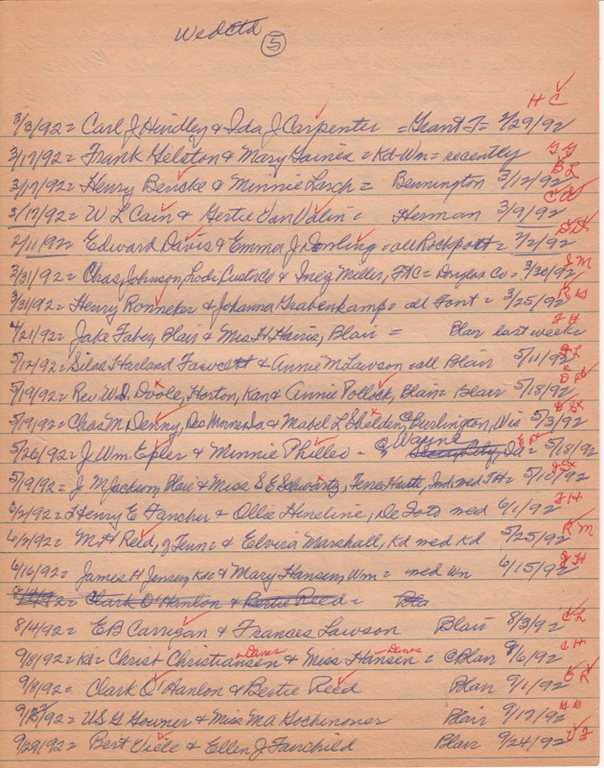 Wedctd
5
H C
3/3/92 = Carl J Hindley & Ida J Carpenter = Grant T = 2/29/92
3/17/92 = Frank Gelston & Mary Gaines = Kd - Wn = recently
3/17/92 = Henry Benske & Minnie Larsch = Bennington 3/12/92
3/17/92 = W L Cain & Gertie Van Valin = Herman 3/9/92
2/11/92 = Edward Davis & Emma J Dowling = all Rockport = 2/2/92
3/31/92 = Chas Johnson, & Inez Miller, = Co = 3/30/92
3/31/92 = Henry Ronneker & Johanna Gravenkamp = all Font = 3/25/92
4/21/92 = Jake Fabey, Blair & Miss H Harris, Blair = Blair last week
5/12/92 = Silas Harland Fawcett & Annie M Lawson all Blair 5/11/92
5/19/92 = Rev W.D. Doole, Horton, Kan & Annie Pollock, Blair = Blair 5/18/92
5/19/92 = Chas M. Denny, Des Moines Ia & Mabel L Shelden, Burlington, Wis 5/3/92
5/26/92 = J. Wm. Epler & Minnie Philleo - @ Wayne Ia = 5/18/92
5/19/92 = J M Jackson, Blair & Miss S E Schwartz, Terre Haute, Ind. wed TH = 5/10/92
6/2/92 = Henry E Fancher & Ollie Hineline, De Soto wed 6/1/92
6/2/92 = M H Reed, of Tenn = & Elvira Marshall, Kd wed Kd 5/25/92
6/16/92 = James H Jensen, Kd & Mary Hansen, Wm = wed Wn 6/15/92
Clark O'Hanlon & Bertie Reed = Bla
8/4/92 = E B Carrigan & Frances Lawson Blair 8/3/92
9/8/92 = Kd = Christ Christiansen & Miss Hansen = @ Blair 9/6/92
9/8/92 = Clark O'Hanlon & Bertie Reed Blair 9/1/92
US G Gowner & Miss MA Hochinoner Blair 9/17/92
9/29/92 = Bert Viele & Ellen J Fairchild Blair 9/24/92